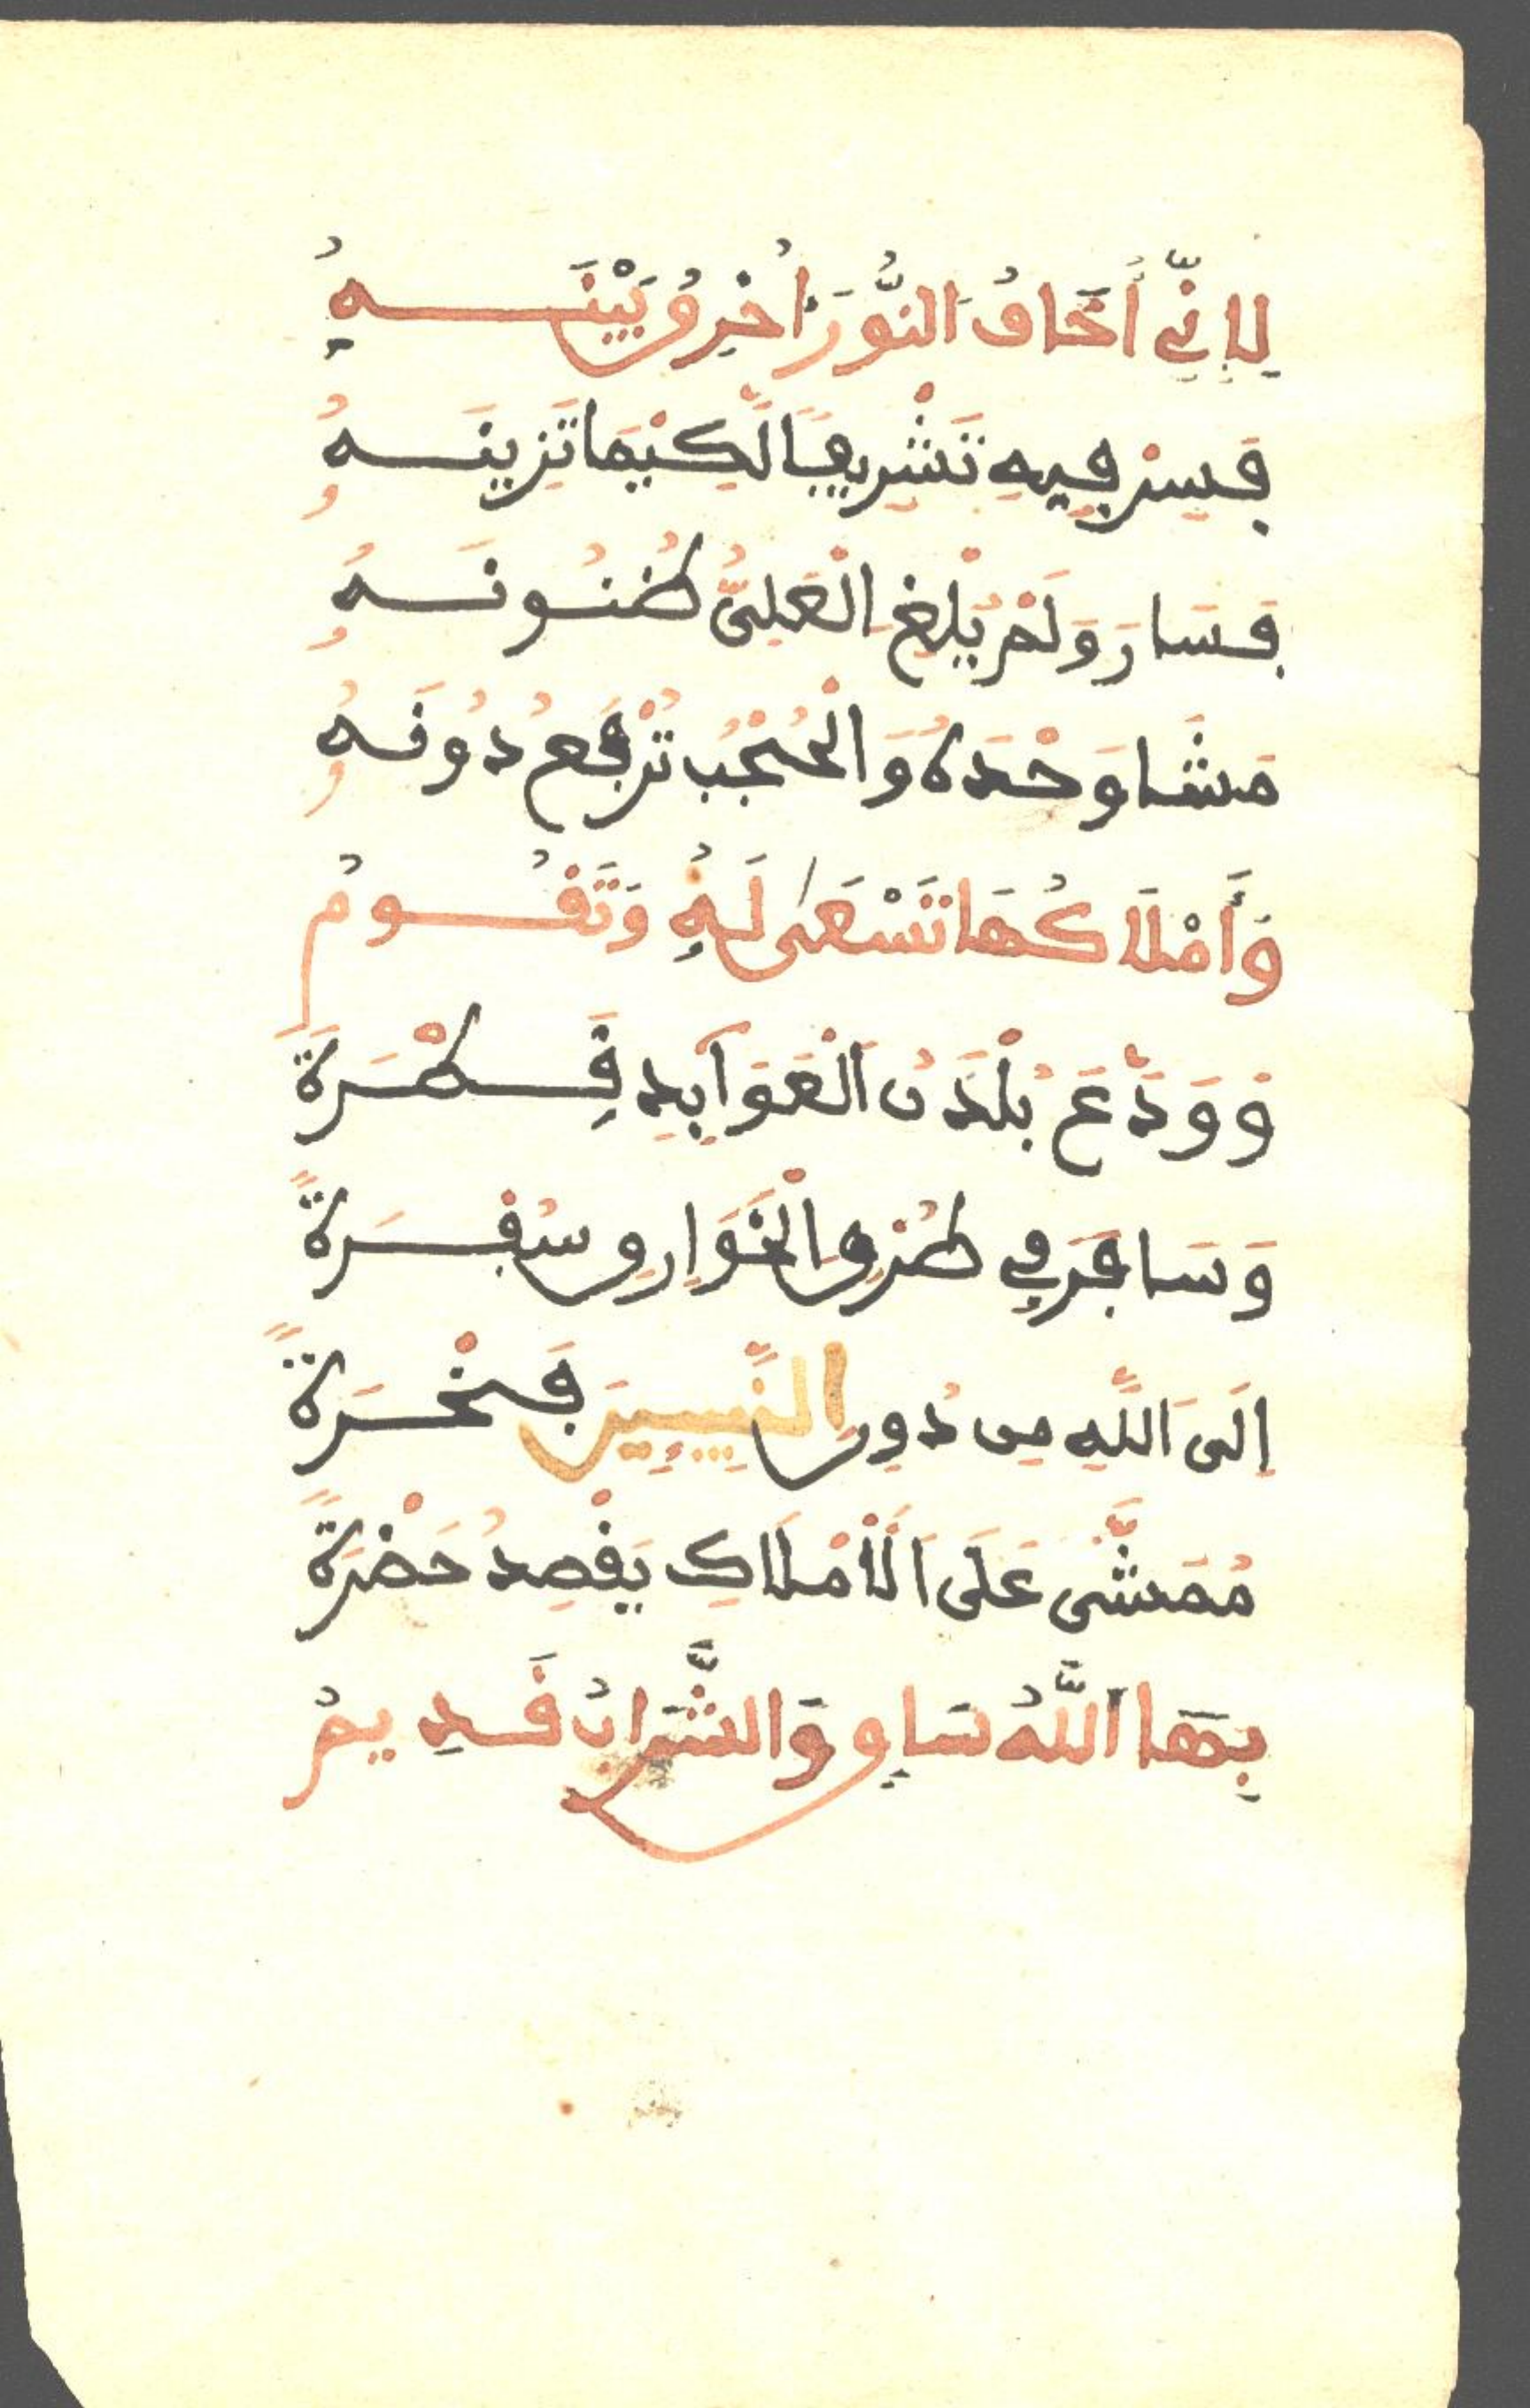 لِإِنِّي أَخَافُ النُّورَ أَخْرِقُ بَيْنَهُ
فَسِرْ فِيهِ تَشْرِيفًا لِّكَيْمَا تَزِينَهُ
فَسَارَ وَلَمْ يَبْلُغِ الْعَلِيُّ ظُنُونَهُ
مَشَا وَحْدَهُ وَالْحُجْبُ تُرْفَعُ دُونَهُ
وَأَمْلَاكُهَا تَسْعَى لَهُ وَتَقُومُ
وَوَدَّعَ بُلْدَنَ الْعَوَآيِدِ قَطْرَةً
وَسَافَرَ فِي طُرْقِ الْخَوَارِقِ سُفْرَةً
إِلَى اللَّهِ مِن دُورِ النَّبِيِّينَ فَخْرَةً
مُمَشًّى عَلَى الْأَمْلَاكِ يَقْصِدُ حَضْرَةً
بِهَا اللَّهُ سَاقٍ وَالشَّرَابُ قَدِيمُ